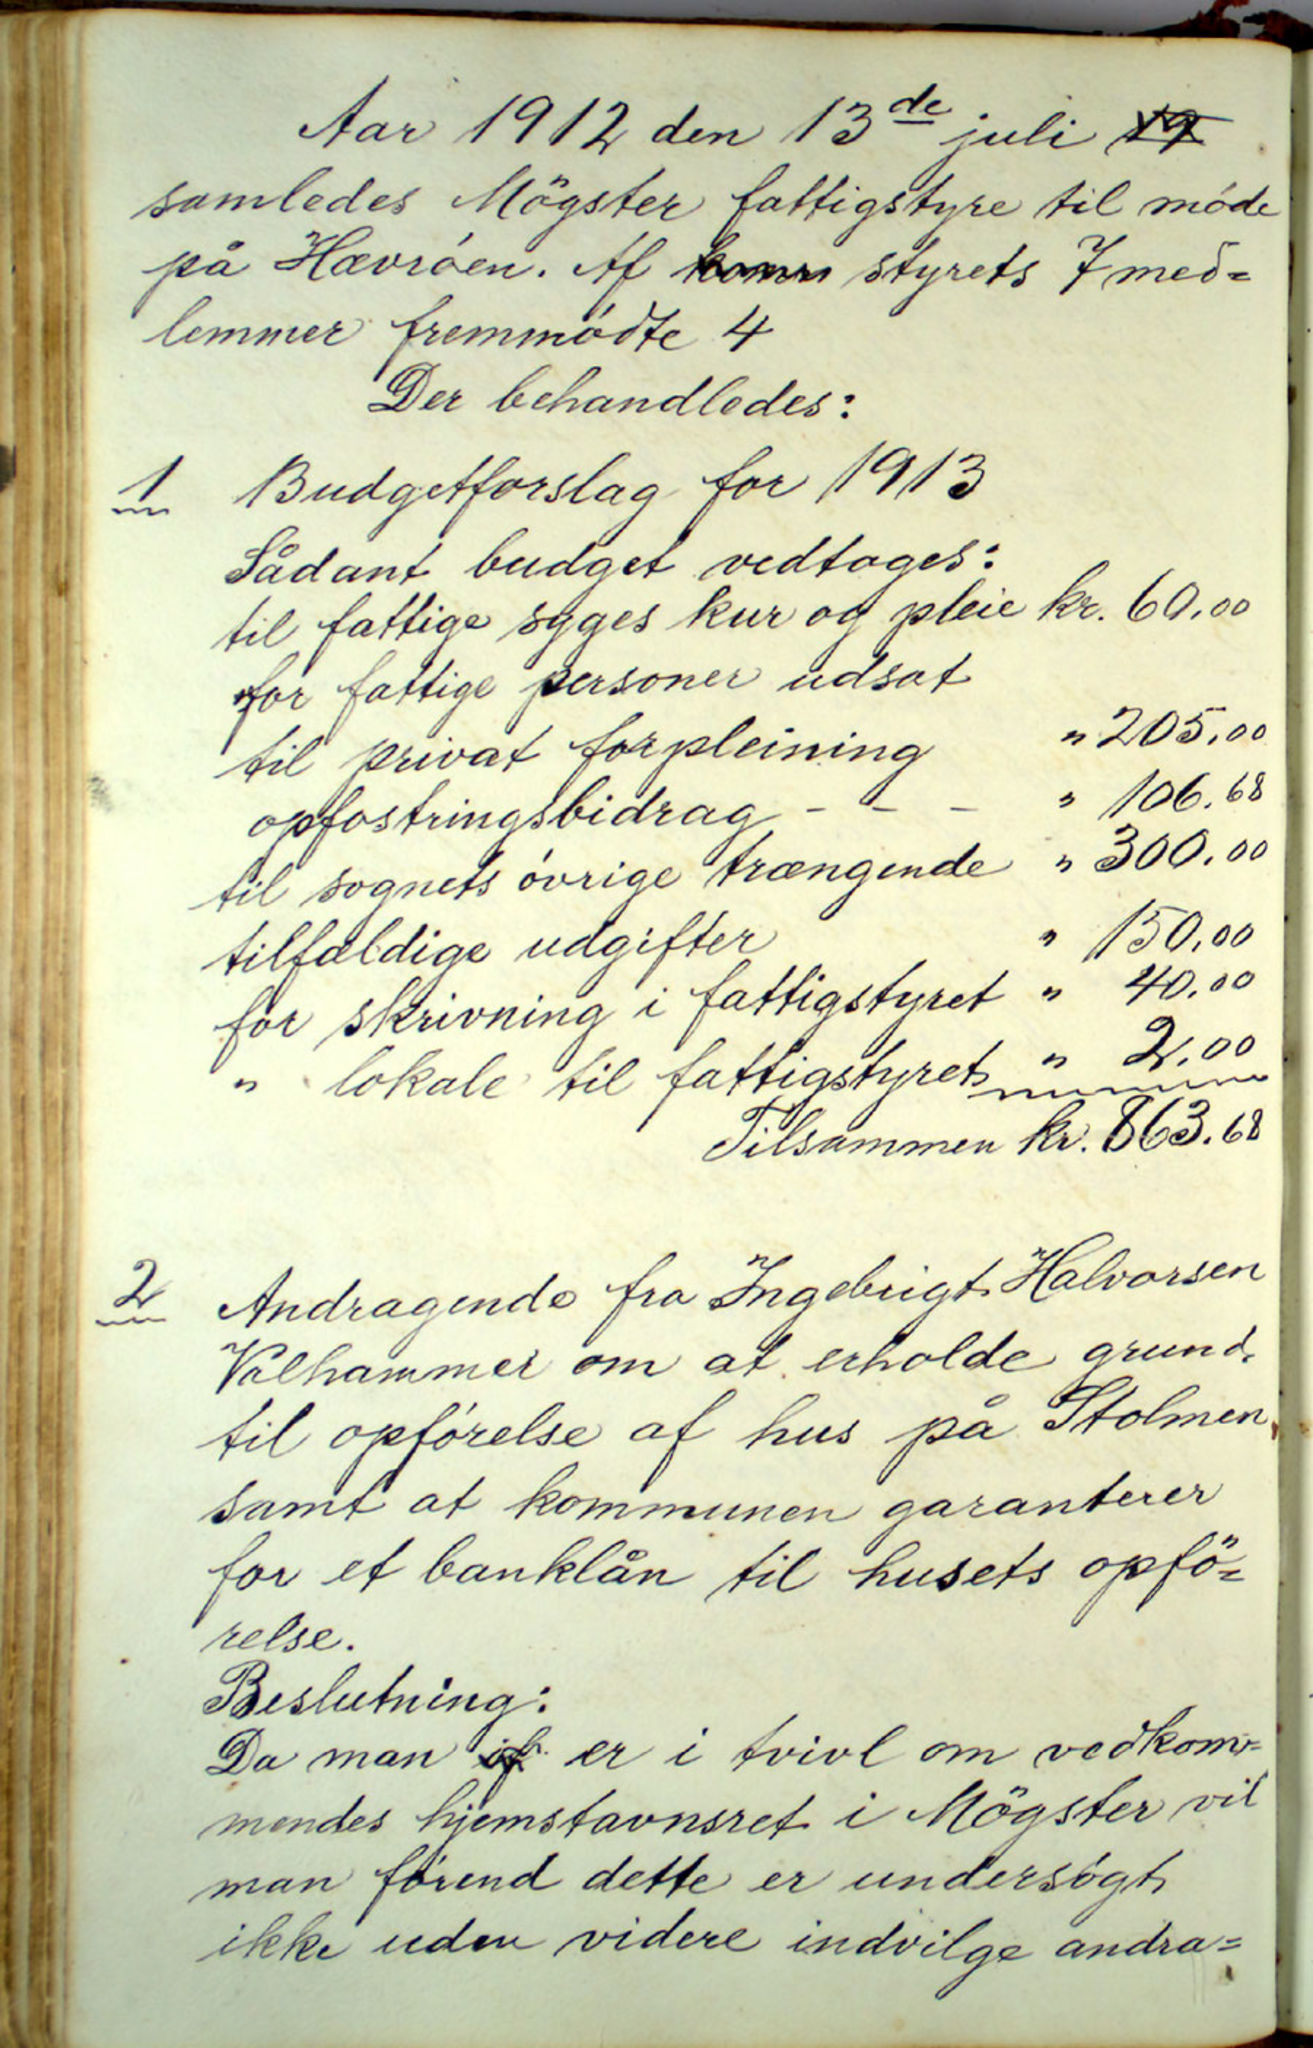 Aar 1912 den 13de juli 19
samledes Mögster fattigstyre til móde
på Hævróen. Af komm styrets 7 med=
lemmer fremmódte 4
Der behandledes:
1 Budgetforslag for 1913
Sådant budget vedtoges:
til fattige syges kur og pleie kr. 60,00
for fattige personer udsat
til privat forpleining " 205,00
opfostringsbidrag - - - " 106.68
til sognets óvrige trængende " 300,00
tilfældige udgifter " 150,00
for skrivning i fattigstyret " 40,00
" lokale til fattigstyret " 2,00
Tilsammen kr. 863.68
2 Andragende fra Ingebrigt Halvorsen
Valhammer om at erholde grund
til opfórelse af hus på Stolmen,
samt at kommunen garanterer
for et banklån til husets opfö=
relse.
Beslutning:
Da man er i tvivl om vedkom=
mendes hjemstavnsret i Mögster vil
man fórend dette er undersógt
ikke uden videre indvilge andra=